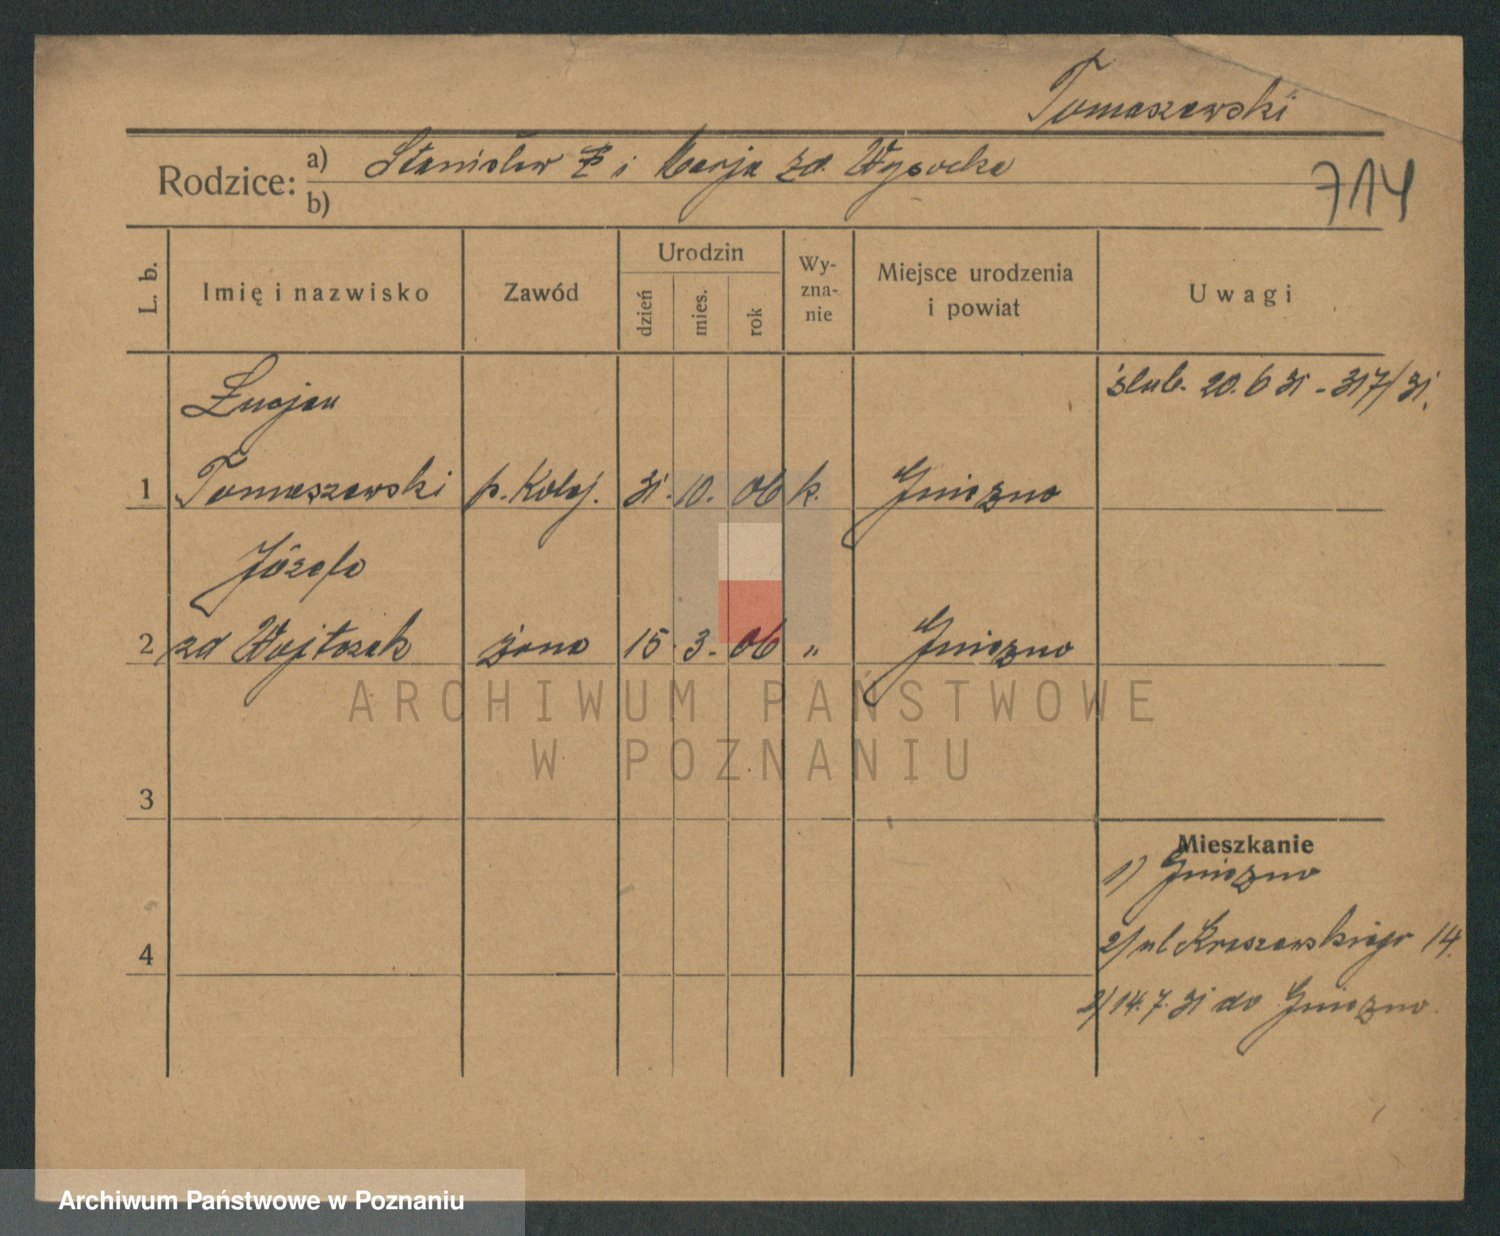 Tomaszewski
Rodzice: a) Stanisław i Marja zd. Wysocka
b)
714
L. b. Imię i nazwisko Zawód Urodzin dzień mies. rok Wy-zna-nie Miejsce urodzenia i powiat Uwagi
Łucjan ślub. 20. 6 31 - 317/31.
1 Tomaszewski p. Kolej. 31. 10. 06 k. Gniezno
Józefa
2 zd Wojtczak żona 15. 3. 06 " Gniezno
ARCHIWUM PAŃSTWOWE
W POZNANIU
3
Mieszkanie
1) Gniezno
2/ ul Kraszewskiego 14.
4
3/ 14. 7. 31 do Gniezno.
Archiwum Państwowe w Poznaniu